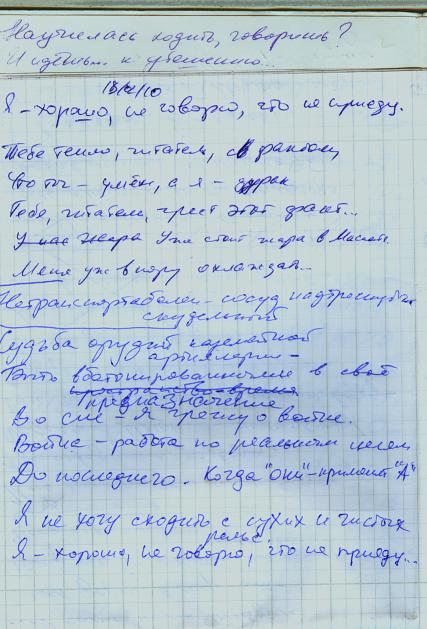 Научилась ходить, говоришь?
И идёшь.. к утешению...
18/IV/10
Я – хорошо, не говорю, что не приеду.
Тебе тепло, читатель, с фактом,
Что ты – умён, а я – дурак
Тебе, читатель, греет этот факт...
У нас жара Уже стоит жара в Масleте
Меня уж впору охлаждать...
Нетранспортабелен – сосуд надтреснутый
скудельный
Судьба орудий
артиллерии –
Быть вбетонированными в своё
пространство-время
предназначение
Во сне – я грежу о войне.
Война – работа по реальным целям
До последнего. Когда "они" – примет "А"
Я не хочу сходить с сухих и чистых
рельс.
Я – хорошо, не говорю, что не приеду...